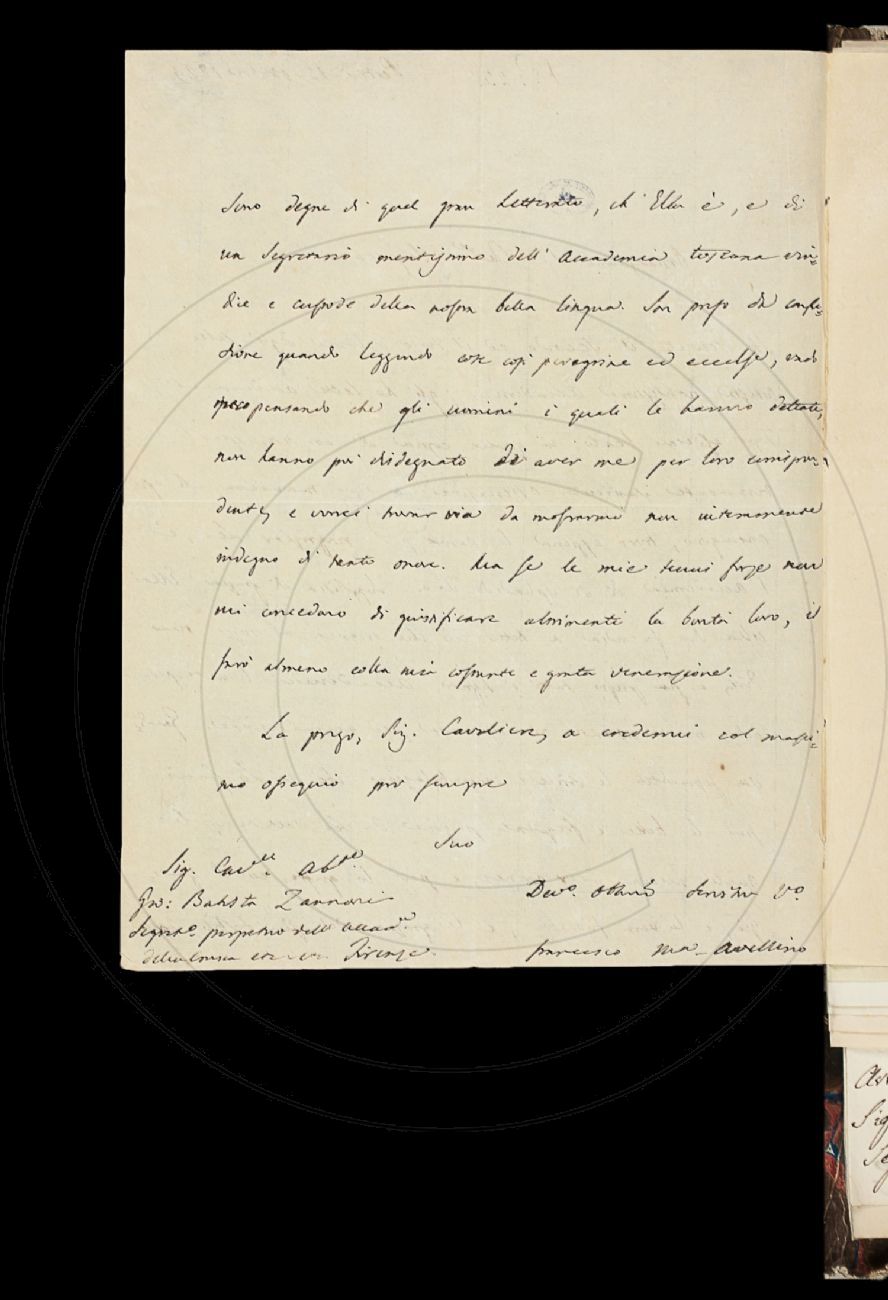 sono degne di quel gran Letterato, ch' Ella è, e di
un Segretario meritissimo dell' Accademia toscana vin=
dice e custode della nostra bella lingua. Son preso da confu=
sione quando leggendo cose così peregrine ed eccelse, vado
pensando che gli uomini i quali le hanno dettate,
non hanno poi disdegnato di aver me per loro corrispon=
dente, e vorrei trovar via da mostrarmi non interamente
indegno di tanto onore. Ma se le mie tenui forze non
mi concedano di giustificare altrimenti la bontà loro, il
farò almeno colla mia costante e grata venerazione.
La prego, Sig. Cavaliere, a credermi col massi=
mo ossequio per sempre
Suo
Sig. Cav.re Ab.te
Gio: Batista Zannoni
Segret.o perpetuo dell' Accad.a
della Crusca Firenze.
Dev.o Obbl. Servitor V.o
Francesco Ma. Avellino